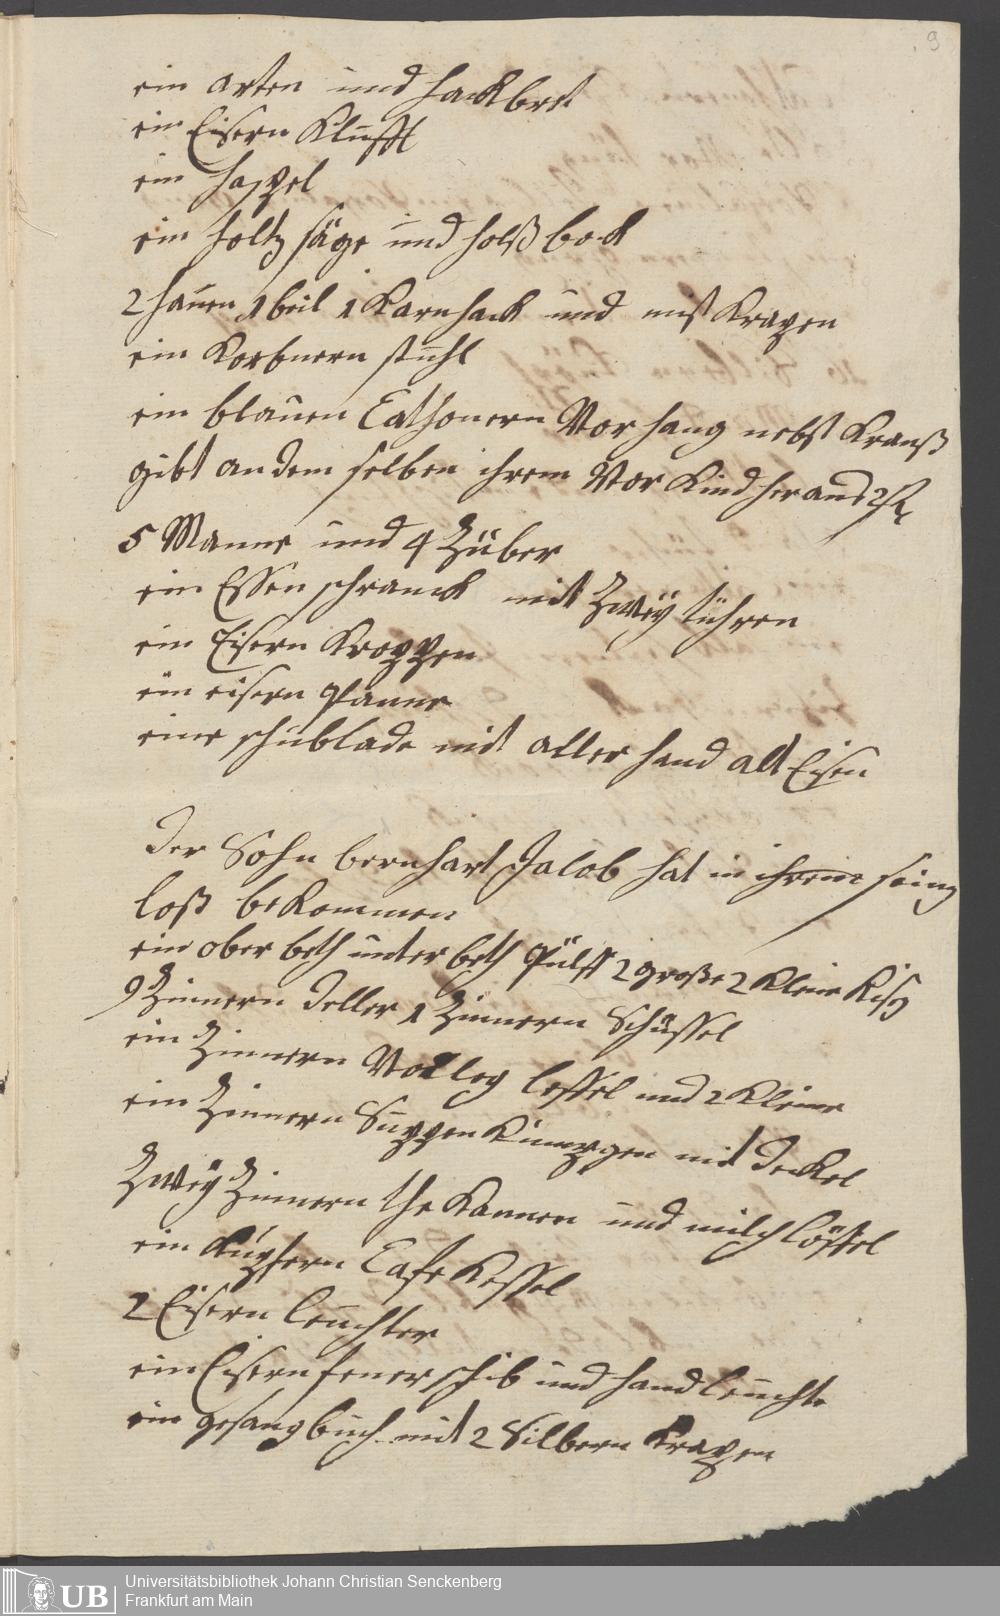 9
ein arten und hackbret
ein Eisern Klufft
ein haspel
ein holtz säge und holß bock
2 hauen 1 beil 1 Karnhack und mist Krapen
ein Korbnern stuhl
ein blauen Cathonern Vorhang nebst Kranß
gibt an dem selben ihrem Vor Kind heraus 2 fl
5 Manne und 4 Züber
ein Essen schranck mit Zweÿ tühren
ein Eisern Kroppen
ein eisern Pfanne
eine schublade mit aller hand alt Eisen
Der Sohn bernhart Jacob hat in ihrem seing
loß bekommen
ein ober beth unter beth Pülff 2 große 2 Kleine Kiß
9 Zinnern Deller 1 Zinnern Schüssel
ein Zinnern Vorleg lessel und 2 Kleine
ein Zinnern Suppen Kumpgen mit Deckel
Zweÿ Zinnern the Kannen und milch löffel
ein Kupfern Cafe Kessel
2 Eisern leuchter
ein Eisern feuer schib und handleuchte
ein gesangbuch mit 2 Silbern Krapen
UB
Universitätsbibliothek Johann Christian Senckenberg
Frankfurt am Main